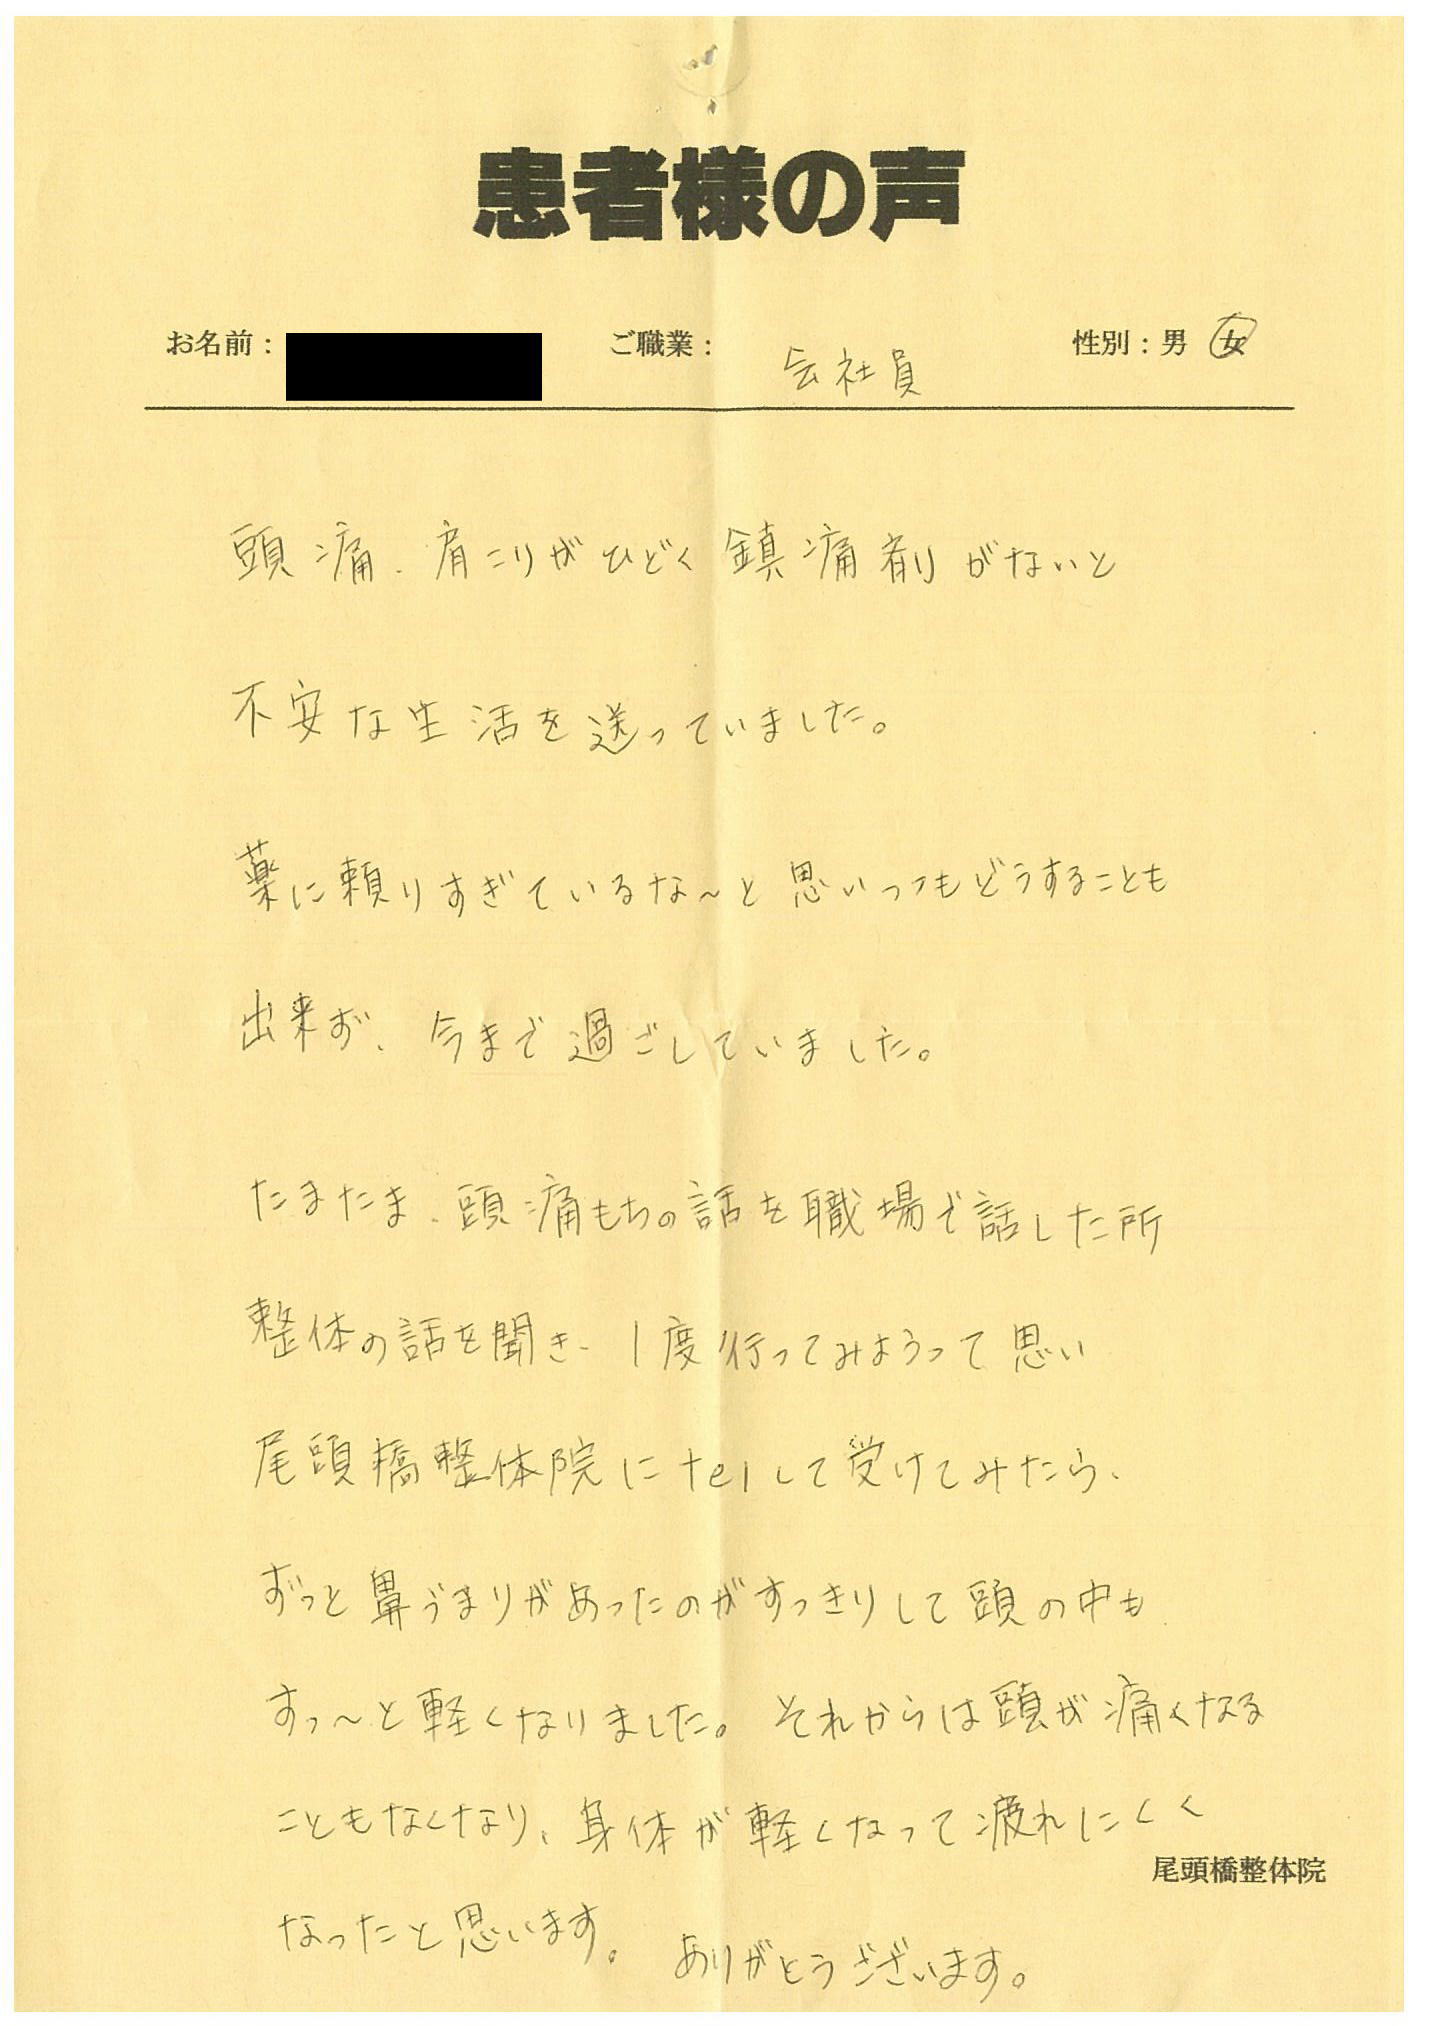 患者様の声
お名前： ご職業： 会社員 性別：男 女
頭痛、肩こりがひどく鎮痛剤がないと
不安な生活を送っていました。
薬に頼りすぎているな～と思いつつもどうすることも
出来ず、今まで過ごしていました。
たまたま、頭痛もちの話を職場で話した所
整体の話を聞き、1度行ってみようって思い
尾頭橋整体院にtelして受けてみたら、
ずっと鼻づまりがあったのがすっきりして頭の中も
すっ～と軽くなりました。それからは頭が痛くなる
こともなくなり、身体が軽くなって疲れにくく
尾頭橋整体院
なったと思います。ありがとうございます。